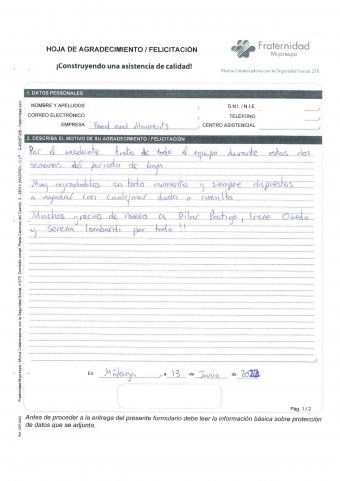 HOJA DE AGRADECIMIENTO / FELICITACIÓN
¡Construyendo una asistencia de calidad!
Fraternidad
Muprespa
Mutua Colaboradora con la Seguridad Social, 275
1. DATOS PERSONALES
NOMBRE Y APELLIDOS
D.N.I. / N.I.E.
CORREO ELECTRÓNICO
TELÉFONO
EMPRESA Food and Moments
CENTRO ASISTENCIAL
2. DESCRIBA EL MOTIVO DE SU AGRADECIMIENTO / FELICITACIÓN
Por el excelente trato de todo el equipo durante estas dos
semanas del periodo de baja
Muy agradables en todo momento y siempre dispuestos
a ayudar con cualquier duda o consulta.
Muchas gracias de nuevo a Pilar Postigo, Irene Oveda
y Serena Lombardi por todo!!
En Málaga, a 13 de Junio de 2022
Pág. 1 / 2
Antes de proceder a la entrega del presente formulario debe leer la información básica sobre protección
de datos que se adjunta.